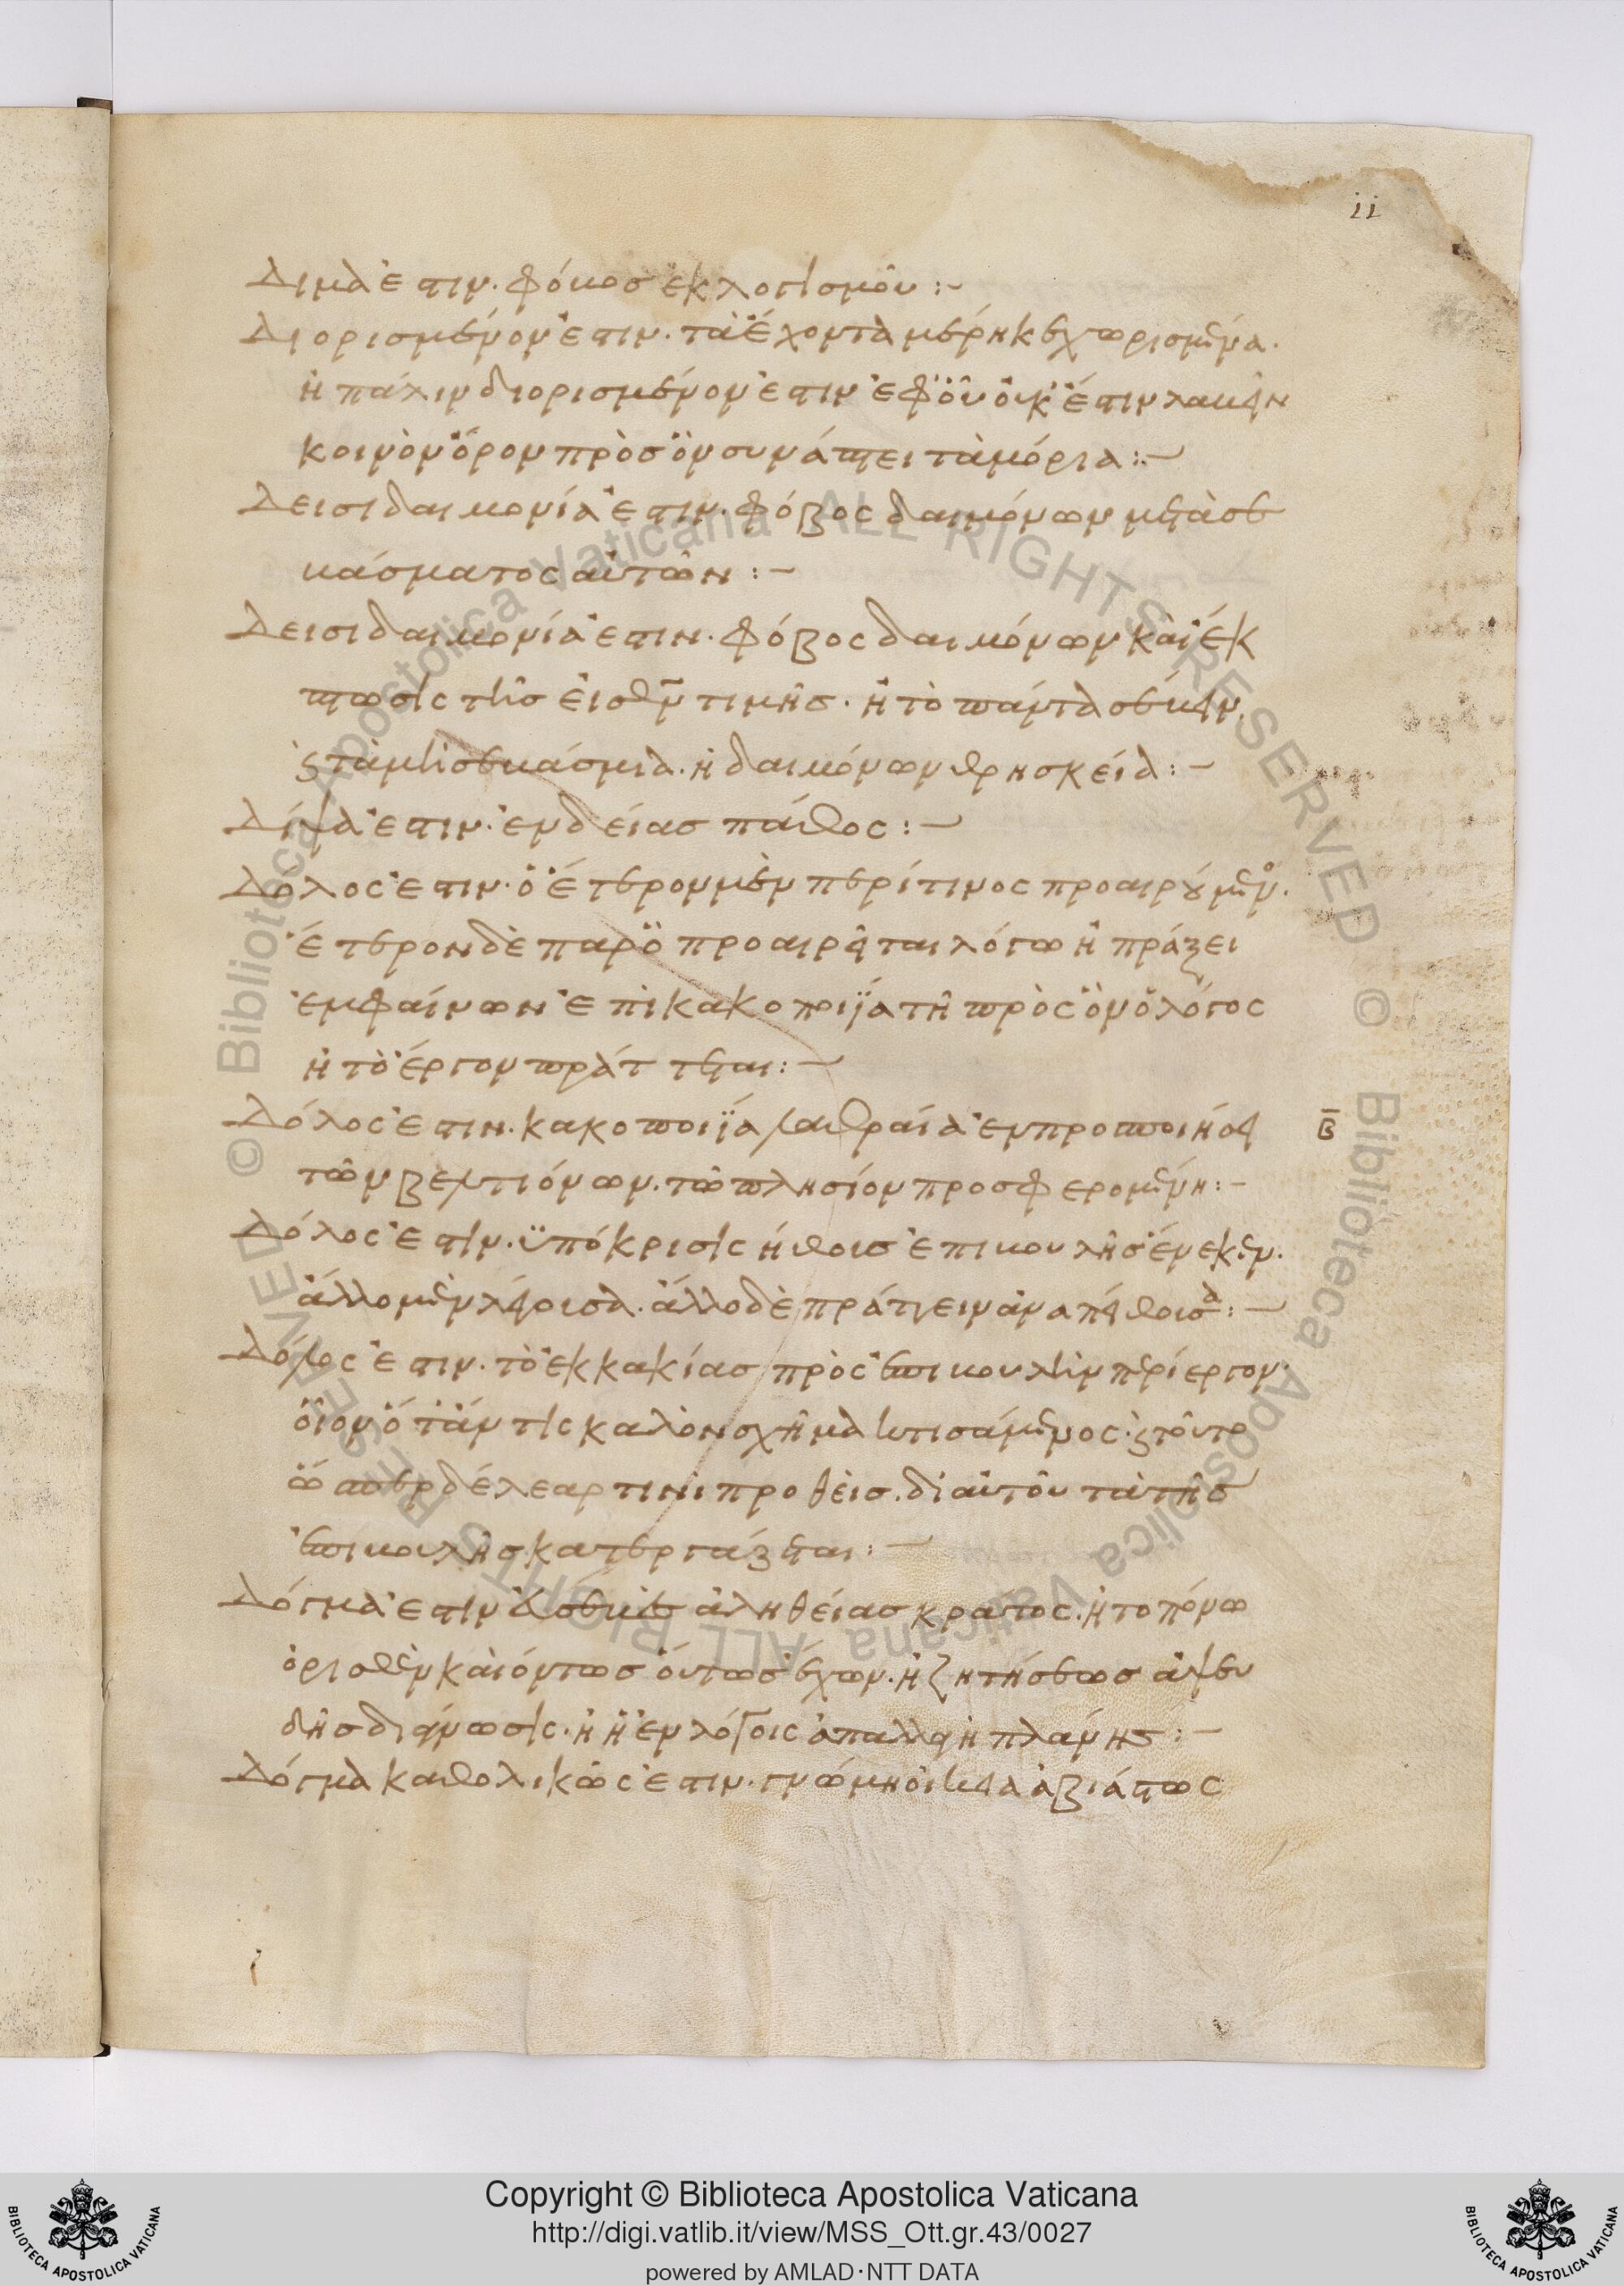 ii
Δῖμά ἐστιν· φόβος ἐκ λογισμοῦ :-
Διορισμένον ἐστιν· τὰ ἔχοντα μέρη κεχωρισμένα·
ἢ πάλιν διορισμένον ἐστὶν ἐφ' οὗ οὐκ ἔστιν λαβεῖν
κοινὸν ὅρον πρὸς ὃν συνάπτει τὰ μόρια :-
Δεισιδαιμονία ἐστιν· φόβος δαιμόνων μετὰ σε
βάσματος αὐτῶν :-
Δεισιδαιμονία ἐστιν· φόβος δαιμόνων καὶ ἔκ
πτωσις τῆς εἰς θεὸν τιμῆς· ἢ τὸ πάντα σέβειν
καὶ τὰ μὴ σεβάσμια· ἢ δαιμόνων θρησκεία :-
Δίψα ἐστιν· ἐνδείας πάθος :-
Δόλος ἐστιν· ὁ ἕτερον μὲν περί τινος προαιρούμενος·
ἕτερον δὲ παρ' ὃ προαιρεῖται λόγω ἢ πράξει
ἐμφαίνων ἐπὶ κακοποιΐα τῆ πρὸς ὃν ὁ λόγος
ἢ τὸ ἔργον πράττεται :-
Δόλος ἐστιν· κακοποιΐα λαθραία ἐν προσποιήσει
τῶν βελτιόνων· τῶ πλησίον προσφερομένη :-
Β
Δόλος ἐστιν· ὑπόκρισις ἤθους ἐπιβουλῆς ἕνεκεν·
ἄλλο μὲν λέγουσα· ἄλλο δὲ πράττειν ἀναπείθουσα :-
Δόλος ἐστιν· τὸ ἐκ κακίας πρὸς ἐπιβουλὴν περίεργον·
οἷον ὅτ' ἄν τις καλὸν σχῆμα ὑποκτισάμενος· καὶ τοῦτο
ὥσπερ δέλεαρ τινὶ προθεὶς· δι' αὐτοῦ τὰ τῆς
ἐπιβουλῆς κατεργάζεται :-
Δόγμα ἐστιν εὐσεβὲς ἀληθείας κράτος· ἢ τὸ πόνω
ὁρισθὲν καὶ ὄντως οὕτως ἔχων· ἢ ζητήσεως ἀψευ
δὴς διάγνωσις· ἢ ἡ ἐν λόγοις ἀπαλλαγὴ πλάνης :-
Δόγμα καθολικῶς ἐστιν· γνώμη οἰκεία ἀξιάστως
Copyright © Biblioteca Apostolica Vaticana
http://digi.vatlib.it/view/MSS_Ott.gr.43/0027
powered by AMLAD·NTT DATA